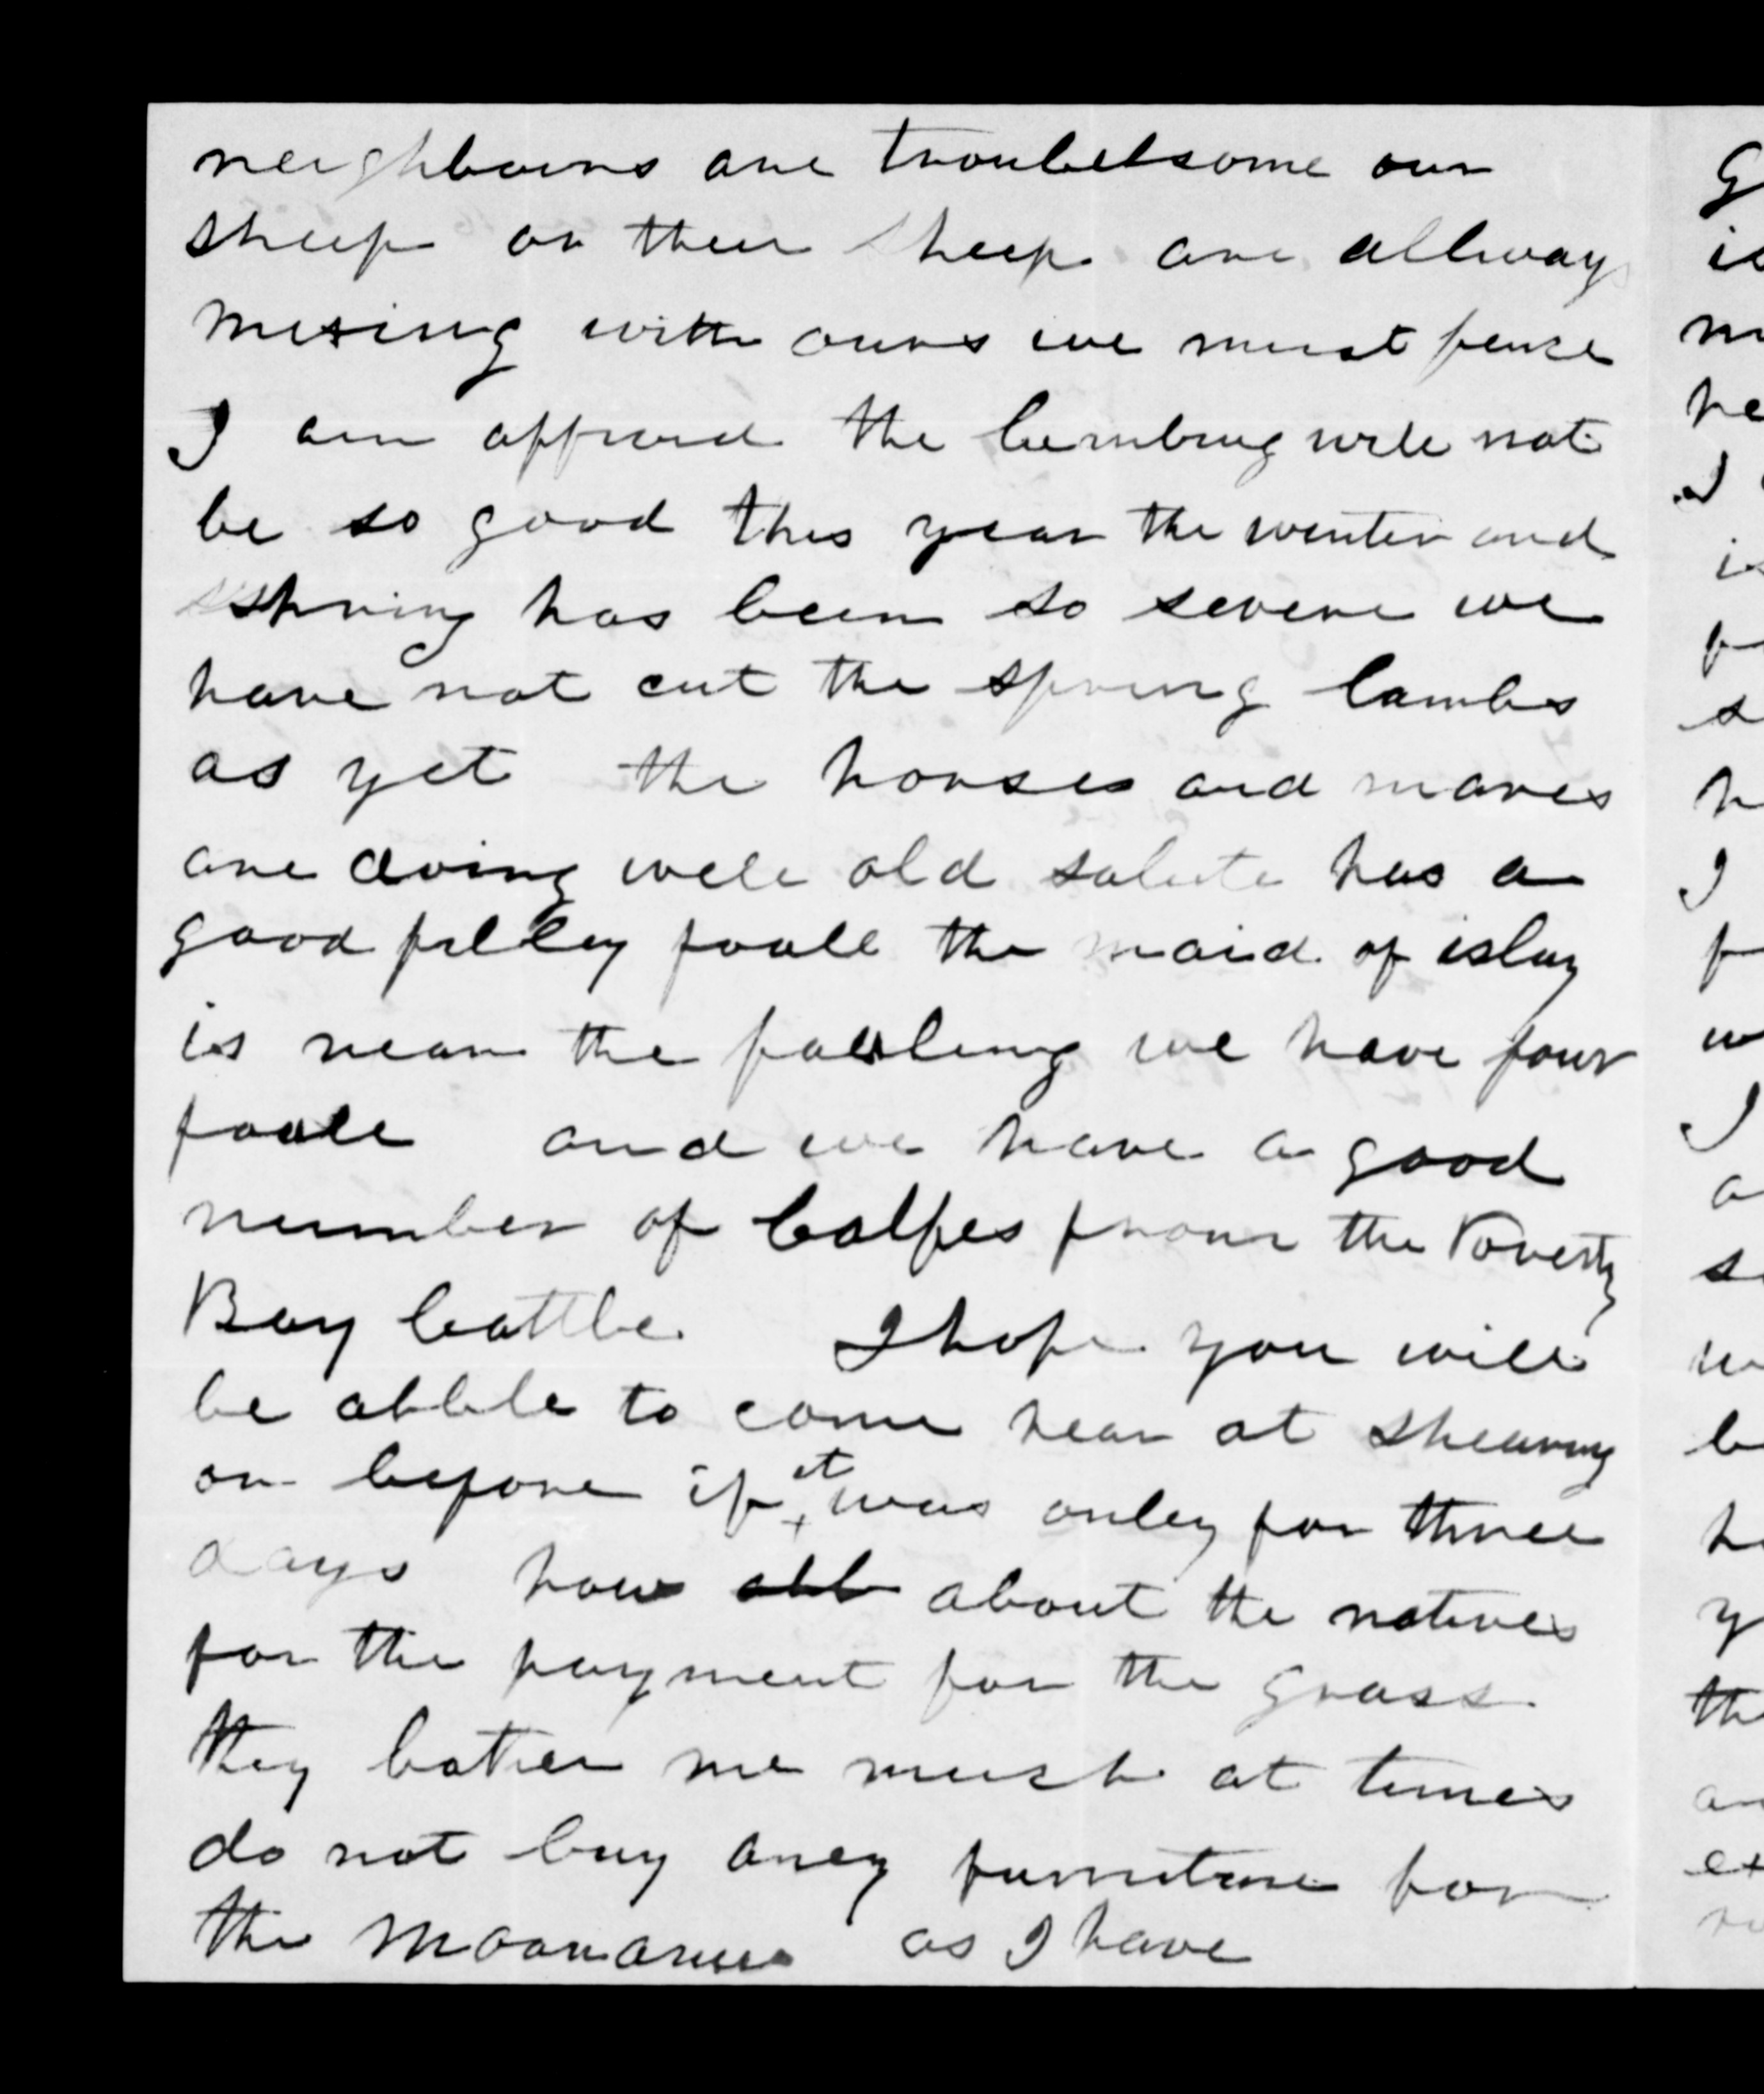 neighbours are troubelsome our
sheep or their sheep are allways
mixing with ours we must fence
I am affraid the lambing will not
be so good this year the winter and
spring has been so severe we
have not cut the spring lambs
as yet the horses and mares
are doing well old salute has a
good filley foall the maid of islay
is near the foaling we have four
foall and we have a good
number of Calfes from the Poverty
Bay Cattle I hope you will
be abble to come hear at shearing
or before if it was only for three
days how abb about the natives
for the payment for the grass
they bother me much at times
do not buy aney furniture for
the as I have